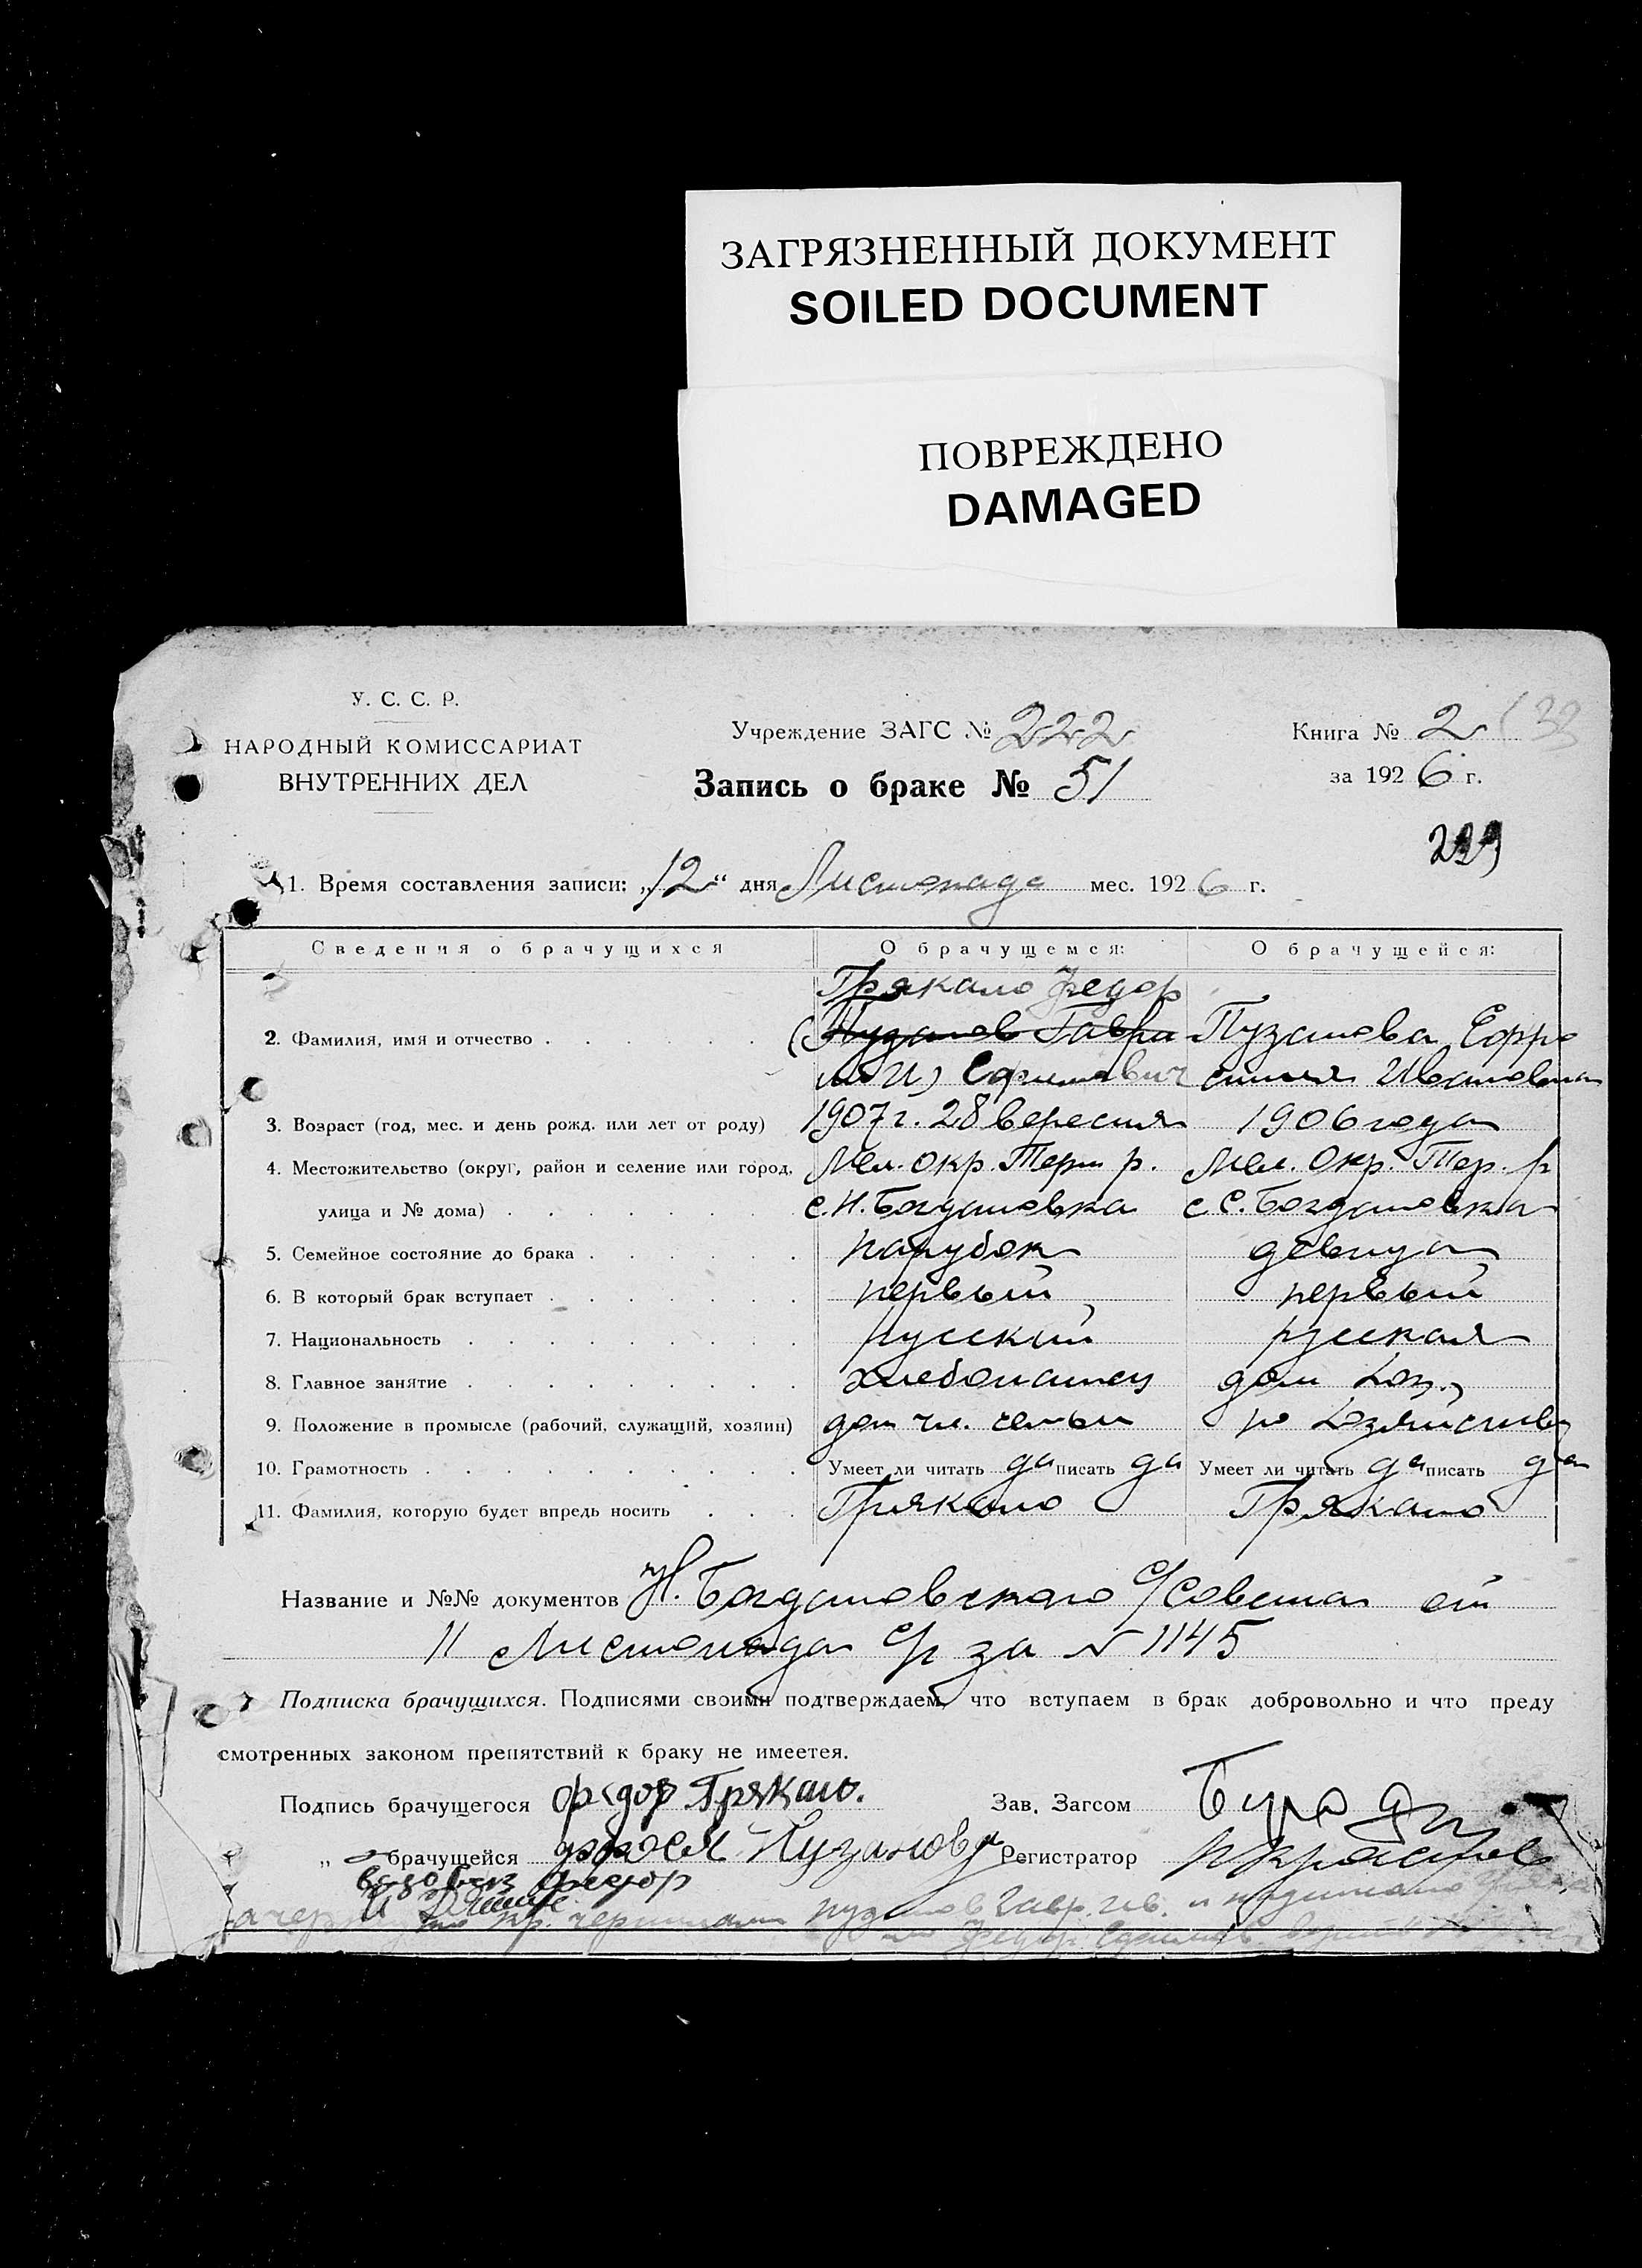 ЗАГРЯЗНЕННЫЙ ДОКУМЕНТ
SOILED DOCUMENT
ПОВРЕЖДЕНО
DAMAGED
У. С. С. Р.
НАРОДНЫЙ КОМИССАРИАТ
ВНУТРЕННИХ ДЕЛ
Учреждение ЗАГС № 222
Запись о браке № 51
Книга № 2
за 1926 г.
1. Время составления записи: „12“ дня Листопада мес. 1926 г.
Сведения о брачущихся О брачущемся: О брачущейся:
Грякало Федор
2. Фамилия, имя и отчество (Пузанов Гаври Пузанова Ефро
ил И) Ефимович синия Ивановна
3. Возраст (год, мес. и день рожд. или лет от роду) 1907 г. 28 вересня 1906 года
4. Местожительство (округ, район и селение или город, Мел. окр. Терп р. Мел. Окр. Тер. р
улица и № дома) с. Н. Богдановка с С. Богдановка
5. Семейное состояние до брака парубок девица
6. В который брак вступает первый первый
7. Национальность русский русская
8. Главное занятие хлебопашец дом хоз.
9. Положение в промысле (рабочий, служащий, хозяин) дом чл. семьи по хозяйству
10. Грамотность Умеет ли читать да писать да Умеет ли читать да писать да
11. Фамилия, которую будет впредь носить Грякало Грякало
Название и №№ документов Н. Богдановского С/Совета от
11 Листопада С/г за N 1145
Подписка брачущихся. Подписями своими подтверждаем, что вступаем в брак добровольно и что преду
смотренных законом препятствий к браку не имеется.
Подпись брачущегося Федор Грякало. Зав. Загсом
„ брачущейся Пузанова Регистратор
Федор
чернилами